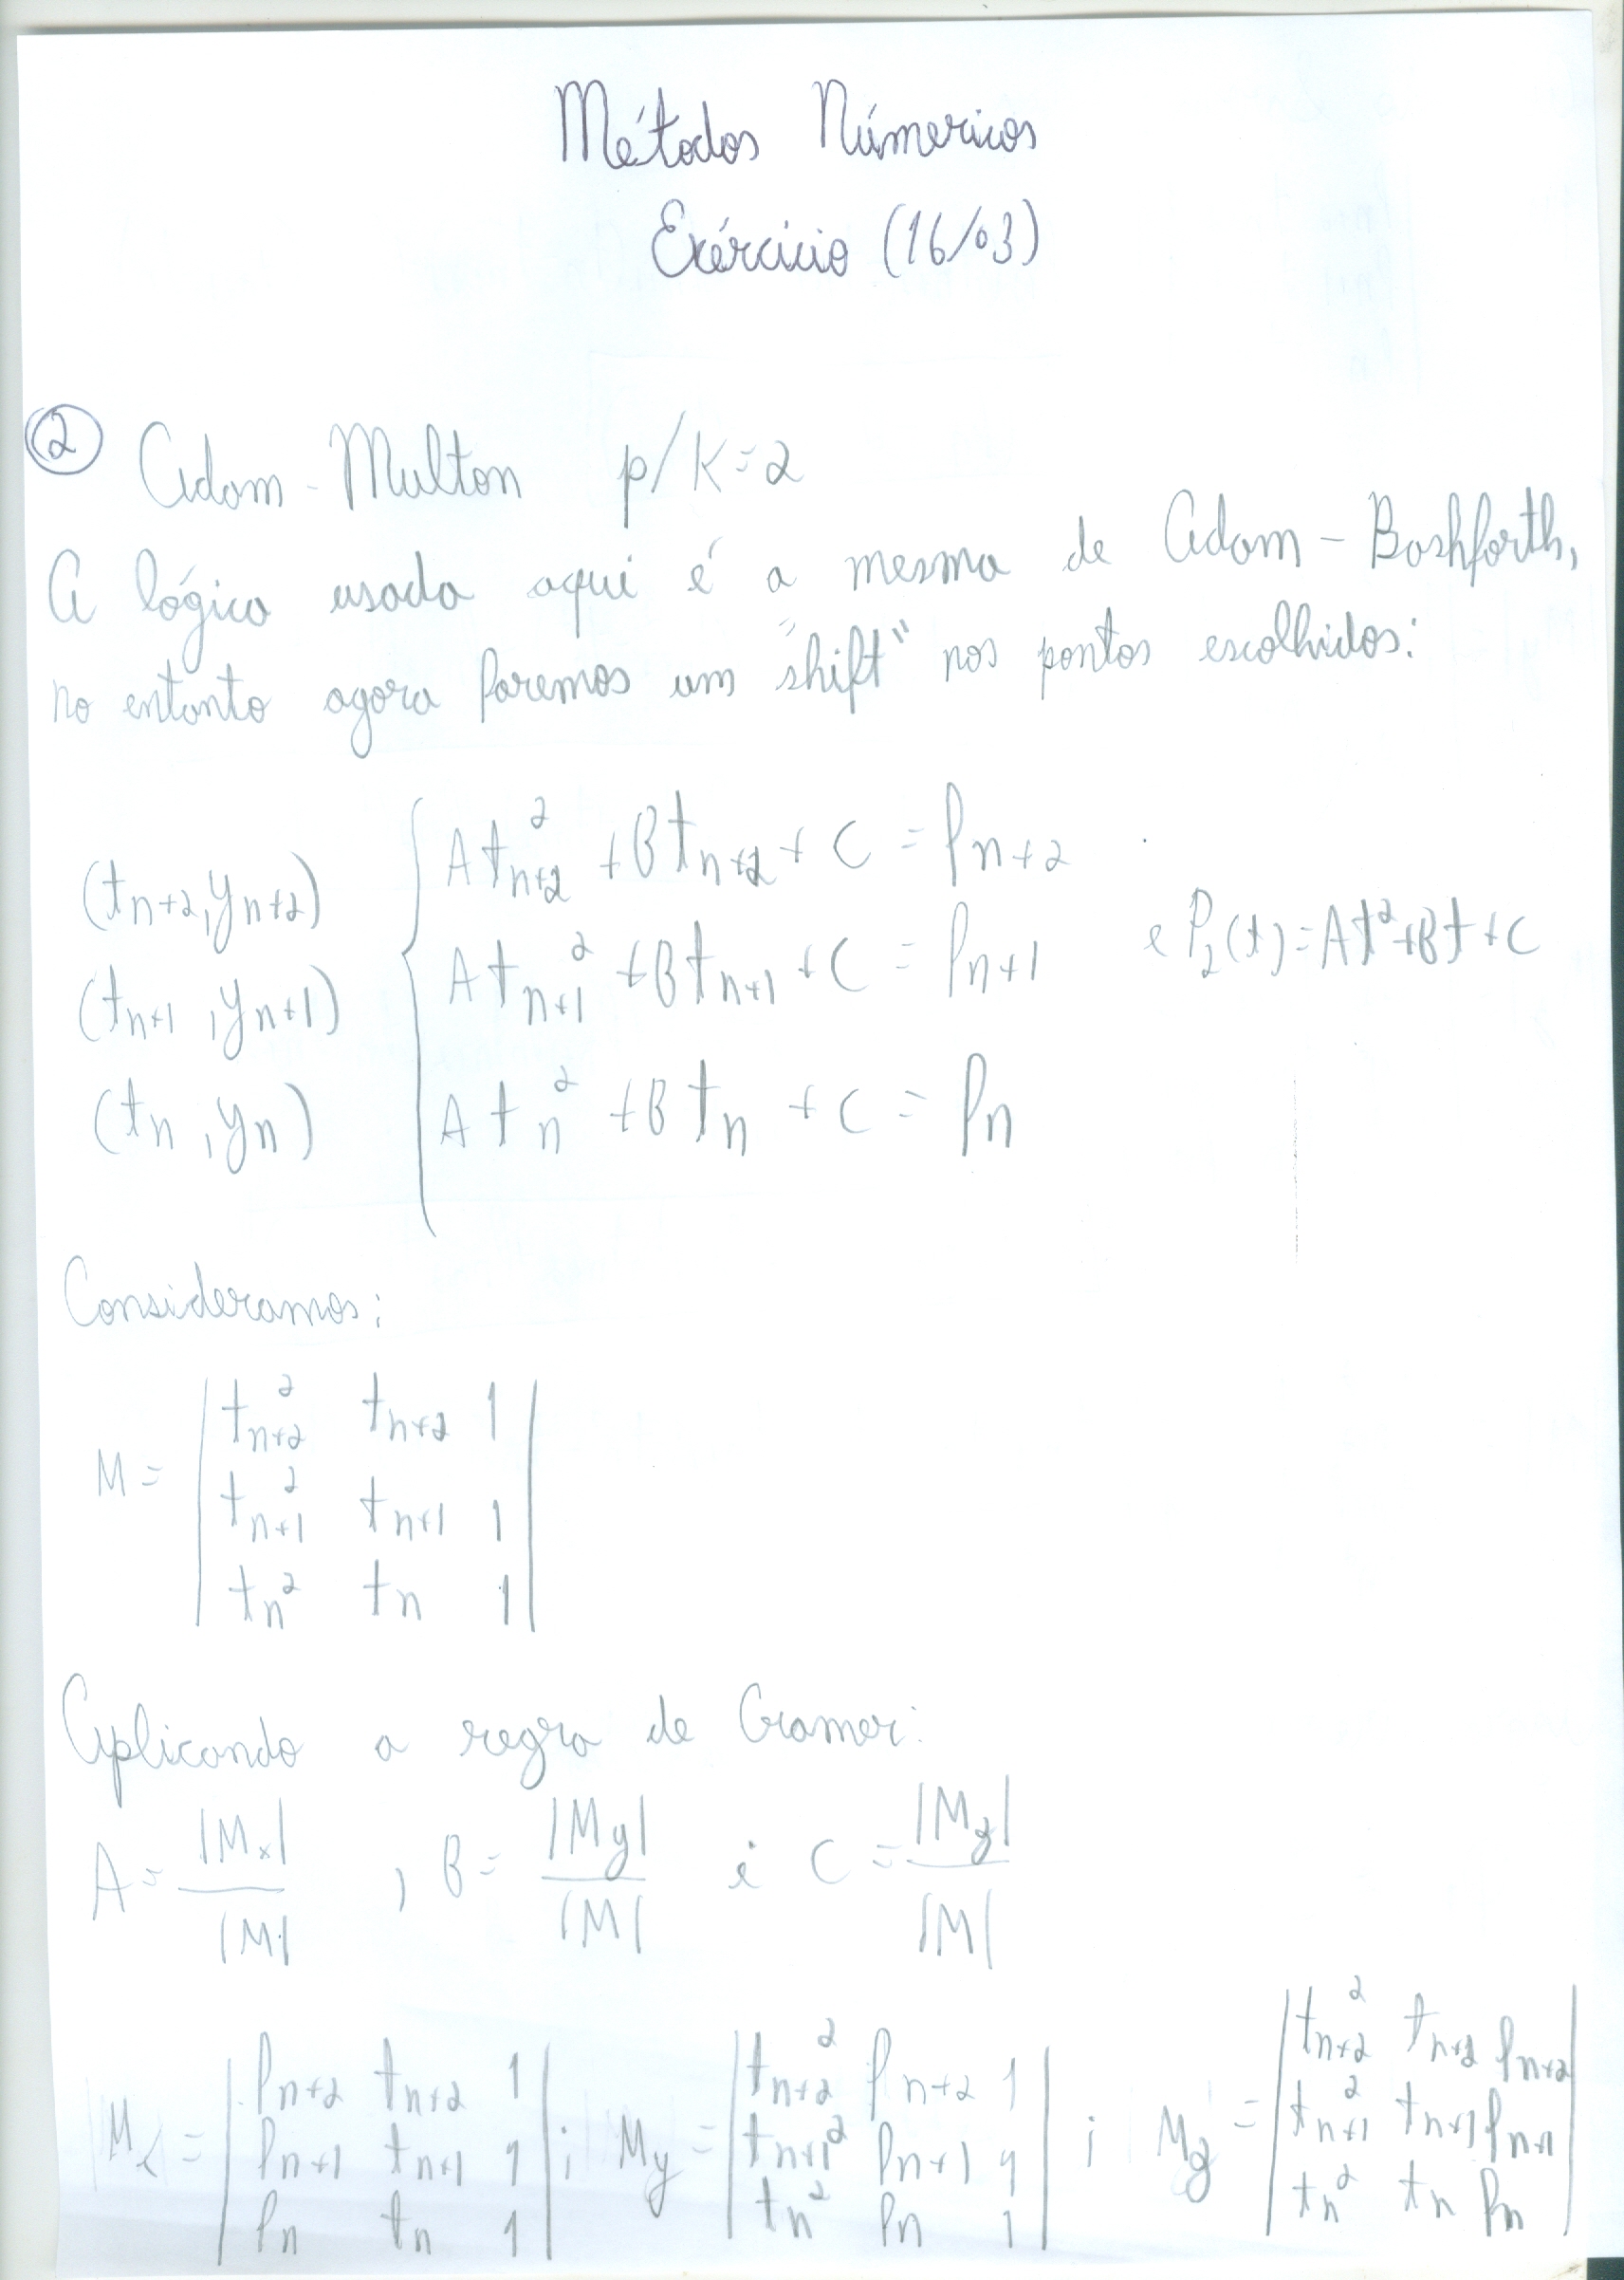 Métodos Númericos
Exércicio (16/03)
② Adam-Multon p/ K=2
A lógica usada aqui é a mesma de Adam-Bashforth,
no entanto agora faremos um "shift" nos pontos escolhidos:
(t_{n+2}, y_{n+2}) { A t_{n+2}^2 + B t_{n+2} + C = f_{n+2}
(t_{n+1}, y_{n+1}) A t_{n+1}^2 + B t_{n+1} + C = f_{n+1} e P_2(t) = At^2 + Bt + C
(t_n, y_n) A t_n^2 + B t_n + C = f_n
Consideramos:
M = | t_{n+2}^2 t_{n+2} 1 |
| t_{n+1}^2 t_{n+1} 1 |
| t_n^2 t_n 1 |
Aplicando a regra de Cramer:
A = |M_x| / |M| , B = |M_y| / |M| e C = |M_z| / |M|
M_x = | f_{n+2} t_{n+2} 1 | ; M_y = | t_{n+2}^2 f_{n+2} 1 | ; M_z = | t_{n+2}^2 t_{n+2} f_{n+2} |
| f_{n+1} t_{n+1} 1 | | t_{n+1}^2 f_{n+1} 1 | | t_{n+1}^2 t_{n+1} f_{n+1} |
| f_n t_n 1 | | t_n^2 f_n 1 | | t_n^2 t_n f_n |